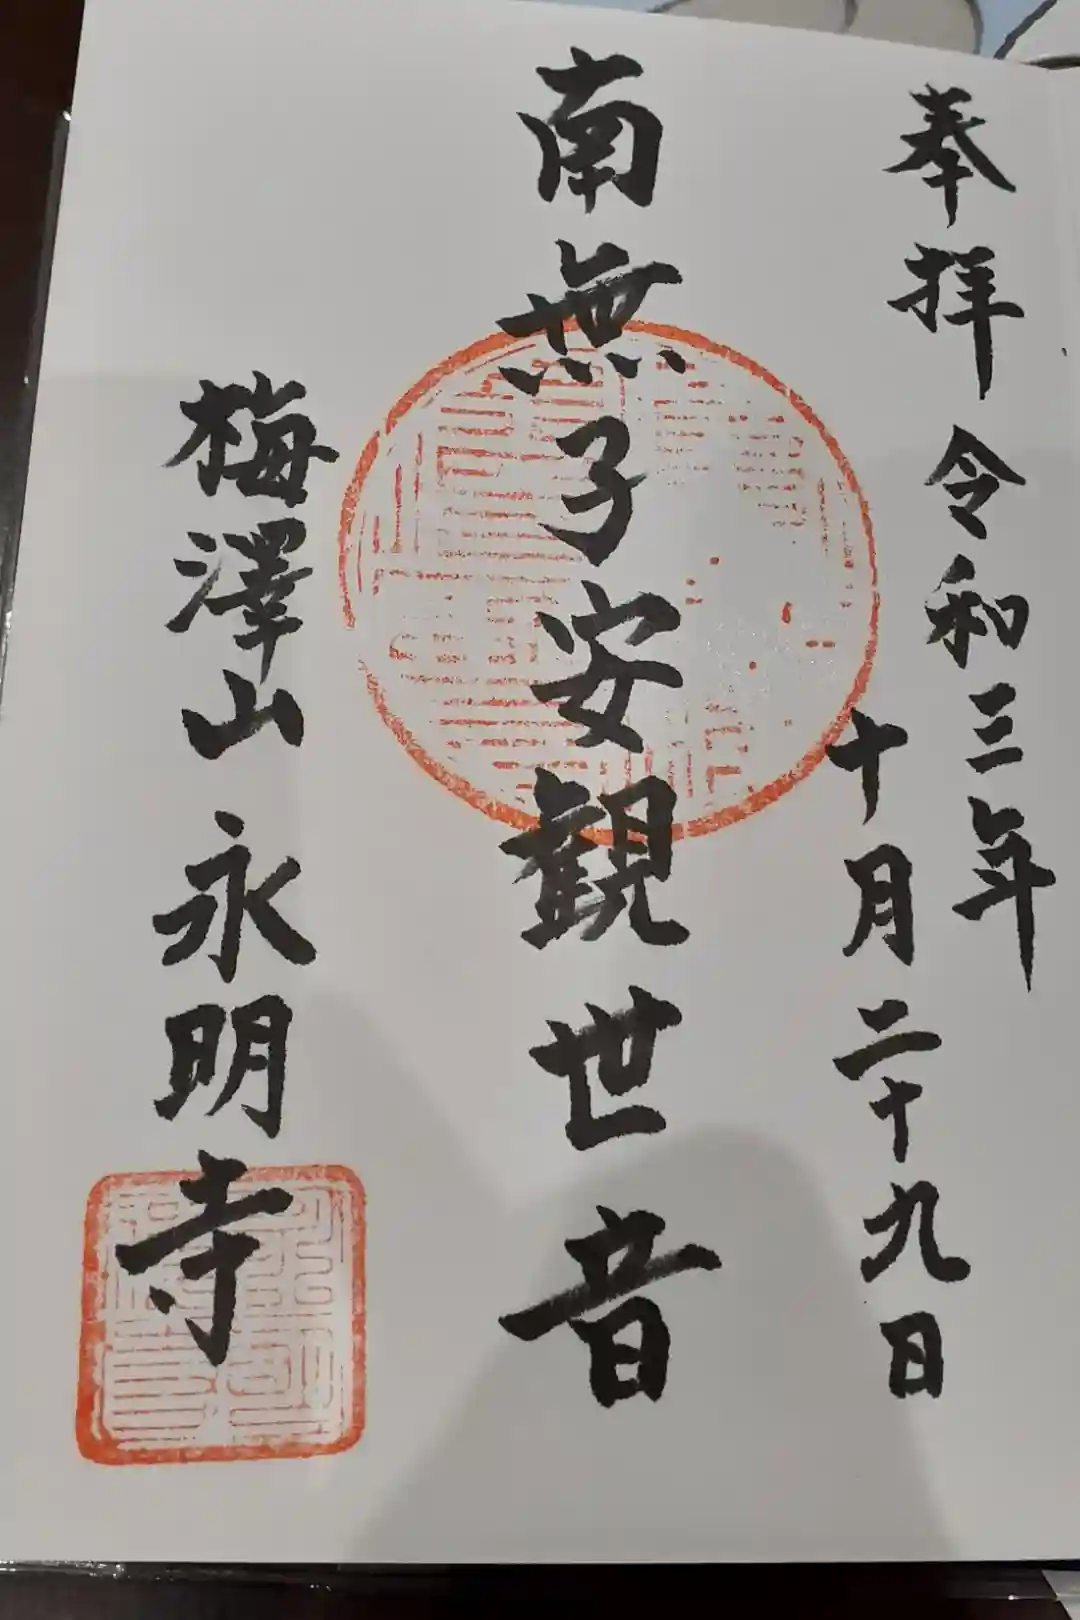 奉拝 令和三年
十月二十九日
南無子安観世音
梅澤山 永明寺